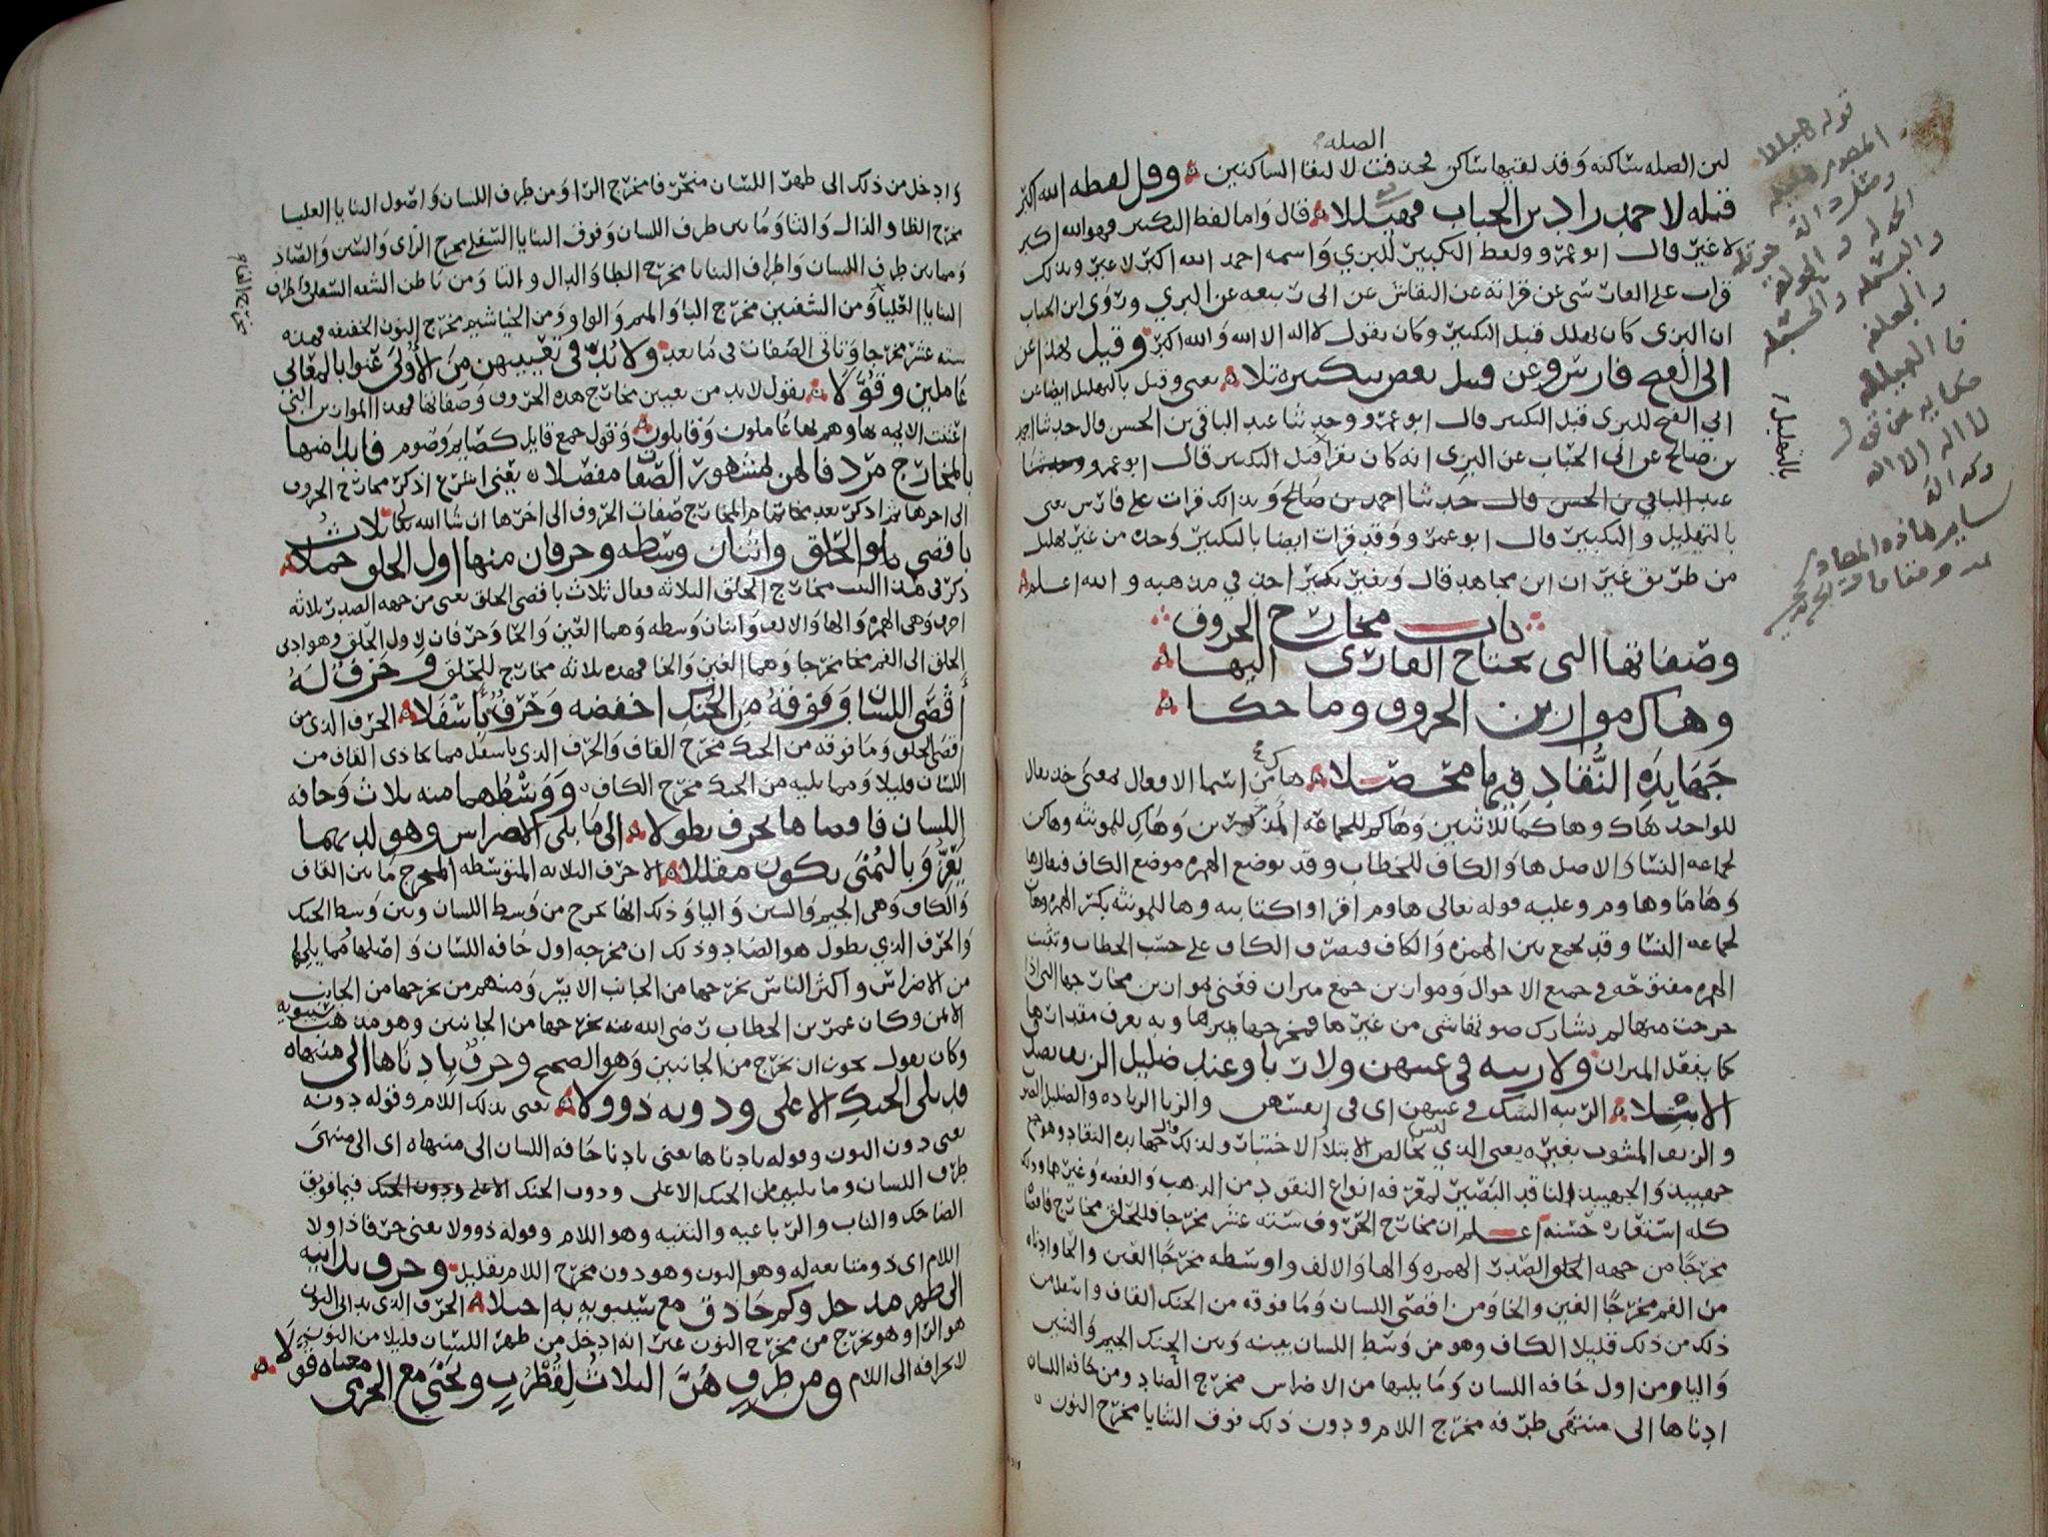 الصله
لان الصله ساكنه وقد لقيها ساكن فحذفت لالتقا الساكنين وقل لفظه الله اكبر
قبله لاحمد زاد ابن الحباب فهيللا قال واما لفظ التكبير فهو الله اكبر
لا غير قال ابو عمرو ولفظ التكبير للبزي واسمه احمد الله اكبر لا غير وبذلك
قرات على الفارسي عن قراته عن النقاش عن ابي ربيعه عن البزي وروى ابن الحباب
ان البزي كان يهلل قبل التكبير وكان يقول لا اله الا الله والله اكبر وقيل بهذا عن
ابى الفتح فارس وعن قنبل بعض بتكبيره تلا يعني وقيل بالتهليل ايضا عن
ابي الفتح للبزي قبل التكبير قال ابو عمرو وحدثنا عبد الباقي بن الحسن قال حدثنا احمد
بن صالح عن ابن الحباب عن البزي انه كان يقرا قبل التكبير قال ابو عمرو وحدثنا
عبد الباقي بن الحسن قال حدثنا احمد بن صالح وبذلك قرات على فارس يعني
بالتهليل والتكبير قال ابو عمرو وقد قرات ايضا بالتكبير وحده من غير تهليل
من طريق غير ان ابن مجاهد قال وبغير تكبير احذ في مذهبه والله اعلم
باب مخارج الحروف
وصفاتها التى يحتاج القارى اليها
وهاك موازين الحروف وما حكا
جهابذه النقاد فيها محصلا هاك من اسما الافعال بمعنى خذ يقال
للواحد هاك وهاكما للاثنين وهاكم للجماعه المذكرين وهاك للمونثه وهاكن
لجماعه النسا والاصل ها والكاف للخطاب وقد توضع الهمزه موضع الكاف فيقال ها
وهاما وهاوم وعليه قوله تعالى هاوم اقراوا كتابيه وها للمونثه بكسر الهمزه وهان
لجماعه النسا وقد تجمع بين الهمزه والكاف فيصرف الكاف على حسب الخطاب وتثبت
الهمزه مفتوحه في جميع الاحوال وموازين جمع ميزان فعنى بموازين مخارجها التي اذا
خرجت منها لم يشارك صوتها شي من غيرها فمخرجها يميزها وبه يعرف مقدارها
كما يفعل الميزان ولا ريبه في عينهن ولا ربا وعند صليل الزيف يصدق
الابتلا الريبه الشك في عينهن اى في انفسهن والربا الزياده والصليل الصوت
والزيف المشوب بغيره يعني الذي ليس بخالص والابتلا الاختبار ولذلك قال جهابذه النقاد وهو جمع
جهبيذ والجهبيذ الناقد البصير لمعرفه انواع النقود من الذهب والفضه وغيرها وذلك
كله استعاره حسنه اعلم ان مخارج الحروف سته عشر مخرجا فللحلق مخارج فاقصا
مخرجا من جهه الحلق الصدر الهمزه والها والالف واوسطه مخرجا العين والحا وادناه
من الفم مخرجا الغين والخا ومن اقصى اللسان وما فوقه من الحنك القاف واسفل من
ذلك من ذلك قليلا الكاف وهو من وسط اللسان بينه وبين الحنك الجيم والشين
واليا ومن اول حافه اللسان وما يليها من الاضراس مخرج الضاد ومن حافه اللسان
ادناها الى منتهى طرفه مخرج اللام ودون ذلك فوق الثنايا مخرج النون
قوله هيللا
المصدر هيلله
ومثله
والبسمله والحسبله
فا الهيلله
حكايه عن قول
لا اله الا الله
وكذالك
ساير هاذه المصادر
بالتهليل
وادخل من ذلك الى طهر اللسان منحرفا مخرج الرا ومن طرف اللسان واصول الثنايا العليا
مخرج الظا والذال والثا وما بين طرف اللسان وفوق الثنايا السفلى مخرج الزاى والسين والصاد
ومما بين طرف اللسان واطراف الثنايا مخرج الطا والدال والتا ومن باطن الشفه السفلى واطراف
الثنايا العليا ومن الشفتين مخرج البا والميم والواو ومن الخياشيم مخرج النون الخفيفه فهذه
سته عشر مخرجا وتاتي الصفات في ما بعد ولا بد في تعيينهن من الاولى عنوا بالمعاني
عاملين وقولا يقول لا بد من تعيين مخارج هذه الحروف وصفاتها فهذا الموازين التي
اعتنت الائمه بها وهم بها عاملون وقايلون وقول جمع قايل كصايم وصوم فابدا منها
بالمخارج مردفا لهن لمشهور الصفا مفصلا يعني اشرع اذكر مخارج الحروف
الى اخرها ثم اذكر بعد تمام المخارج صفات الحروف الى اخرها ان شا الله تعالى ثلاث
باقصى الحلق واثنان وسطه وحرفان منها اول الحلق جملا
ذكر في هذا البيت مخارج الحلق الثلاثه فقال ثلاث باقصى الحلق يعنى من جهه الصدر ثلاثه
احرف وهي الهمزه والها والالف واثنان وسطه وهما العين والحا وحرفان لاول الحلق وهو ادنى
الحلق الى الفم مخا مخرجا وهما الغين والخا فهذه ثلاثه مخارج للحلق وحرف له
اقصى اللسان وفوقه من الحنك احفضه وحرف باسفلا الحرف الذي من
اقصى الحلق وما فوقه من الحنك مخرج القاف والحرف الذي باسفل مما يحاذى القاف من
اللسان قليلا ومما يليه من الحنك مخرج الكاف ووسطهما منه ثلاث وحافه
اللسان فاقصاها لحرف تطولا الى ما يلى الاضراس وهو لديهما
يعز وباليمنى يكون مقللا الاحرف الثلاثه المتوسطه المخرج ما بين القاف
والكاف وهي الجيم والشين واليا وذلك انها تخرج من وسط اللسان وبين وسط الحنك
والحرف الذي يطول هو الضاد وذلك ان مخرجه اول حافه اللسان واصلها مما يليها
من الاضراس واكثر الناس يخرجها من الجانب الايسر ومنهم من يخرجها من الجانب
الايمن وكان عمر بن الخطاب رضى الله عنه يخرجها من الجانبين وهو مذهب سيبويه
وكان يقول يجوز ان يخرج من الجانبين وهو الصحيح وحرف بادناها الى منتهاه
قد يلى الحنك الاعلى ودونه ذو ولا يعنى بذلك اللام وقوله دونه
يعنى دون النون وقوله بادناها يعني بادنا حافه اللسان الى منتهاه اى الى منتهى
طرف اللسان وما يليها من الحنك الاعلى ودون الحنك الاعلى ودون الحنك فيما فويق
الضاحك والناب والرباعيه والثنيه وهو اللام وقوله ذو ولا يعنى حرفا ذا ولا
اللام اى ذو متابعه له وهو النون وهو دون مخرج اللام بقليل وحرف يدانيه
الى طهر مدخل وكم حاذق مع سيبويه به اجتلا الحرف الذي يدانى النون
هو الرا وهو يخرج من مخرج النون غير انه ادخل من طهر اللسان قليلا من النون
لانحرافه الى اللام ومن طرف هن الثلاث لقطرب ويحيى مع الجرمى معناه قولا
مخرج الفا